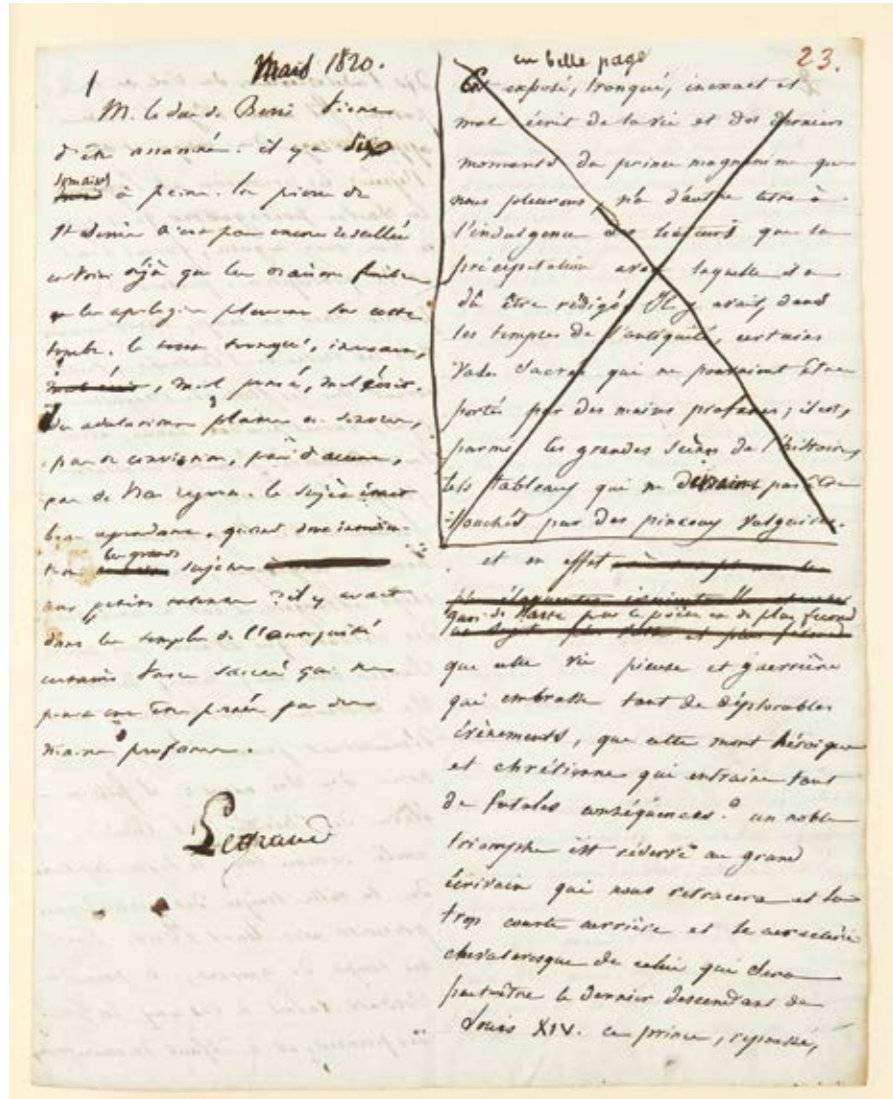 1
Mars 1820.
M. le duc de Berri vient
d'être assassiné. il y a six
semaines
à peine. la pierre de
St Denis n'est pas encore rescellée
et voici déjà que les oraisons funèbres
et les apologies pleuvent sur cette
tombe. le tout tronqué, inexact,
mal pensé, mal écrit.
des adulations plates ou sonores,
pas de conviction, pas d'accent,
pas de vrai regret. le sujet était
beau cependant. quand donc interdira-
t-on les grands sujets
aux petits talents ? il y avait
dans les temples de l'antiquité
certains vases sacrés qui ne
pouvaient être portés par des
mains profanes.
Lettrave
en belle page
23.
Cet exposé, tronqué, inexact et
mal écrit de la vie et des derniers
moments du prince magnanime que
nous pleurons, n'a d'autre titre à
l'indulgence des lecteurs que la
précipitation avec laquelle il a
dû être rédigé. Il y avait, dans
les temples de l'antiquité, certains
vases sacrés qui ne pouvaient être
portés par des mains profanes ; il est,
parmi les grandes scènes de l'histoire,
des tableaux qui ne devraient pas être
touchés par des pinceaux vulgaires.
et en effet
quoi de plus vaste pour le poète et de plus fécond
que cette vie pieuse et guerrière
qui embrasse tant de déplorables
évènements, que cette mort héroïque
et chrétienne qui entraîne tant
de fatales conséquences ? un noble
triomphe est réservé au grand
écrivain qui nous retracera et la
trop courte carrière et le caractère
chevaleresque de celui qui sera
peut-être le dernier descendant de
Louis XIV. ce prince, repoussé,